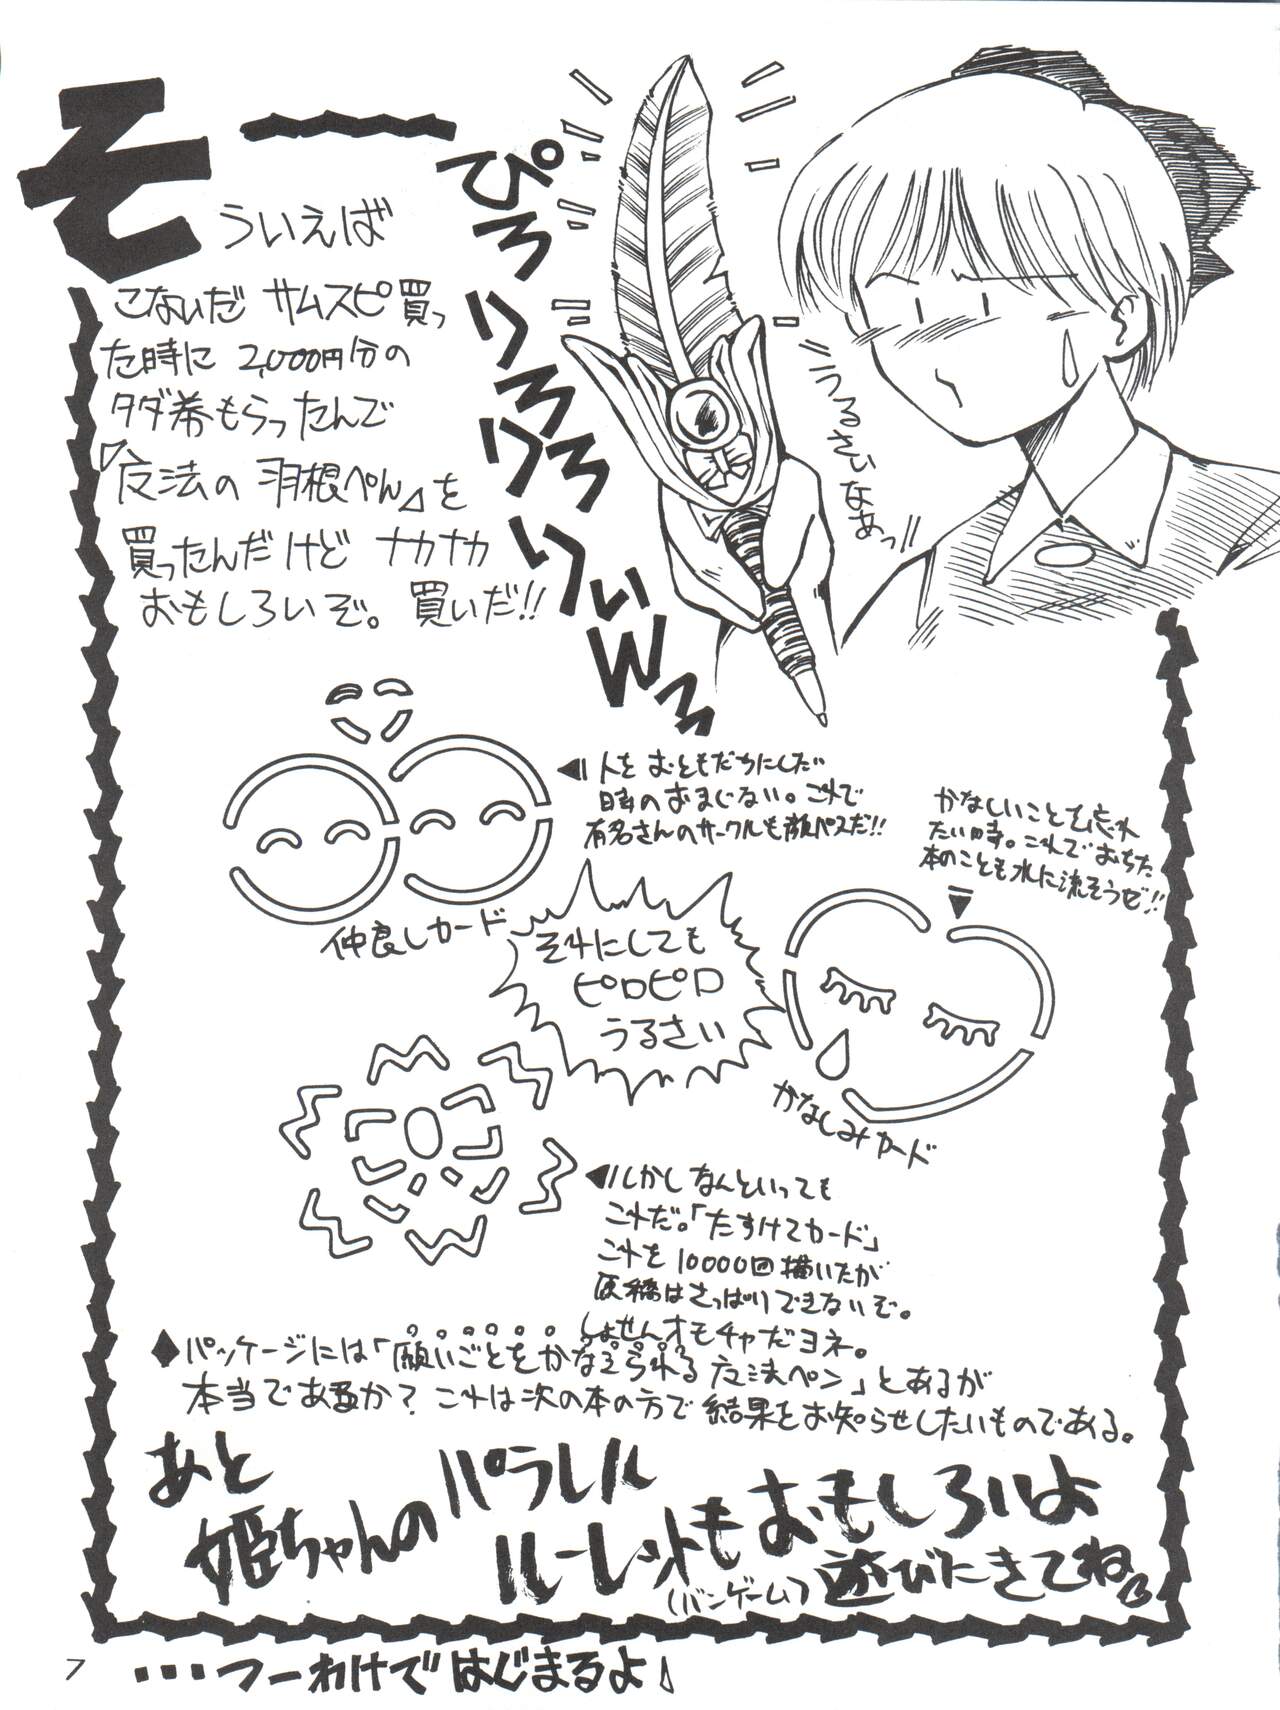 そ
ういえば
こないだ サムスピ買っ
た時に 2,000円分の
タダ券もらったんで
『魔法の羽根ぺん』を
買ったんだけど ナカナカ
おもしろいぞ。 買いだ!!
ぴろりろろりろりぃ
うるさいなあっ
◀人をおともだちにしたい
時のおまじない。これで
有名さんのサークルも顔パスだ!!
仲良しカード
かなしいことを忘れ
たい時。これでおちた
本のことも水に流そうぜ!!
▼
それにしても
ピロピロ
うるさい
かなしみカード
◀しかしなんといっても
これだ。「たすけてカード」
これを10000回描いたが
原稿はさっぱりできないぞ。
しょせんオモチャだヨネ。
◆パッケージには「願いごとをかなえられる魔法ペン」とあるが
本当であるか? これは次の本の方で結果をお知らせしたいものである。
あと
姫ちゃんのパラレル
ルーレットもおもしろいよ
(バンゲーム) 遊びにきてね
7
・・・つーわけではじまるよ♪